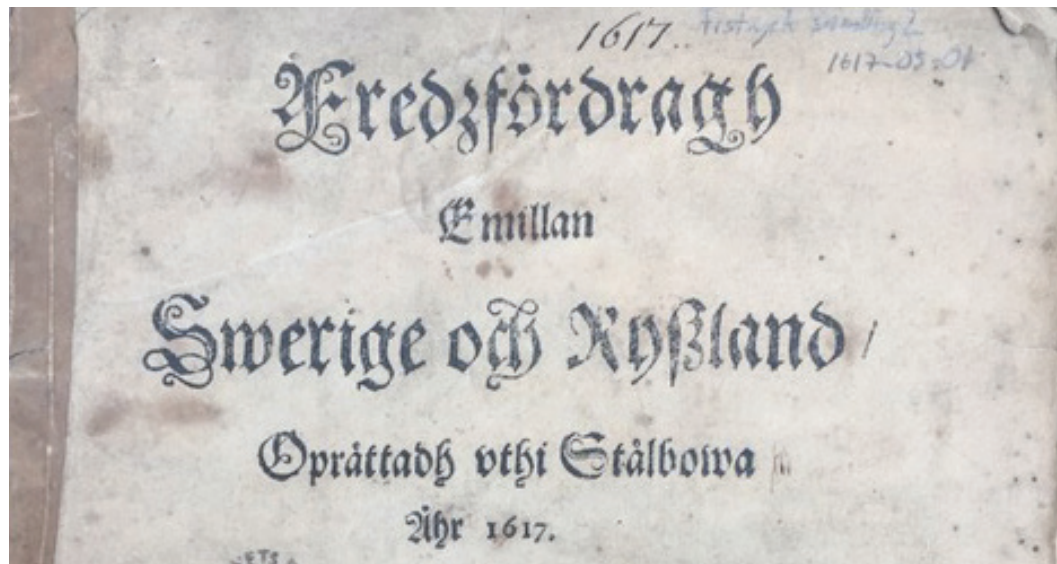 1617.
1617-05-01
Fredzfördragh
Emillan
Swerige och Ryßland/
Oprättadh vthi Stålbowa
Åhr 1617.